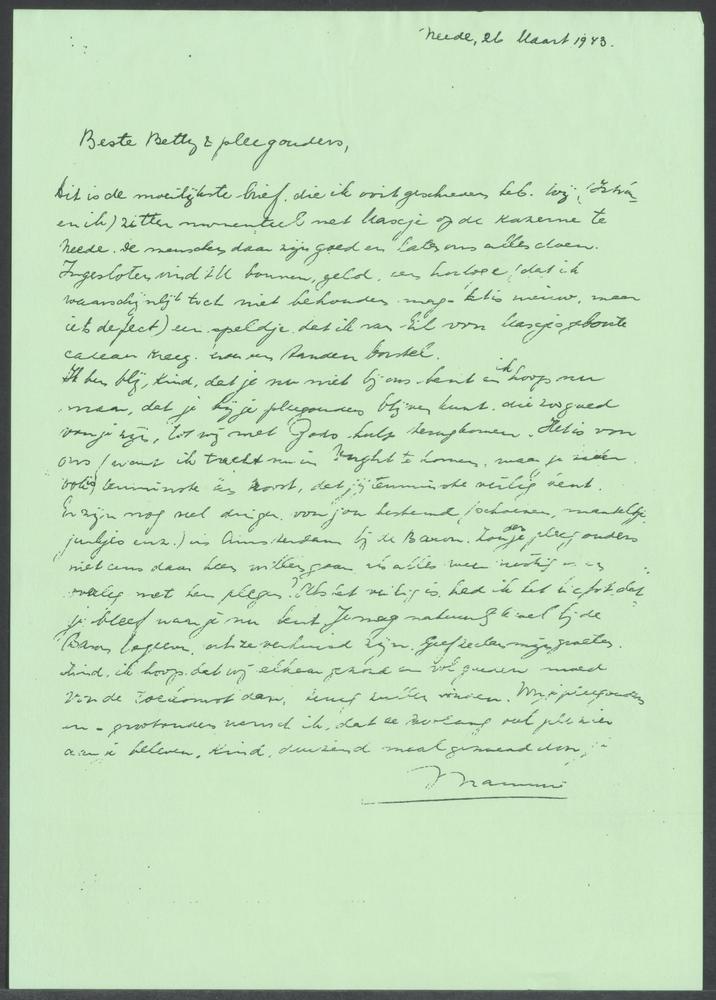 Neede, 26 Maart 1943.
Beste Betty & pleegouders,
Dit is de moeilijkste brief, die ik ooit geschreven heb. Wij,
en ik) zitten momenteel met Kasje op de kazerne te
Neede. De menschen daar zijn goed en laten ons alles doen.
Ingesloten vind U bonnen, geld, een horloge (dat ik
waarschijnlijk toch niet behouden mag - het is nieuw, maar
iets defect) een speldje, dat ik van voor Kasjes geboorte
cadeau kreeg en een tandenborstel.
Ik ben blij, kind, dat je nu niet bij ons bent en ik hoop nu
maar, dat je bij je pleegouders blijven kunt, die zoo goed
voor je zijn, tot wij met Gods hulp terugkomen. Het is voor
ons (want ik tracht nu in Vught te komen, waar je
is) tenminste een troost, dat jij tenminste veilig bent.
Er zijn nog veel dingen voor jou bestemd, (schoenen, manteltje,
jurkjes enz.) in Amsterdam bij de Baron. Zouden je pleegouders
niet eens daar heen willen gaan en alles
veilig met hen plegen? Als het veilig is, had ik het liefst, dat
je bleef waar je nu bent. Je mag natuurlijk wel bij de
Baron logeeren, als ze verhuisd zijn. Geef ze den mijn groeten.
Kind, ik hoop, dat wij elkaar gezond en vol goeden moed
voor de toekomst dan, terug zullen vinden. Mijn pleegouders
en - grootouders wensch ik, dat ze zoolang veel plezier
aan je beleven. Kind, duizend maal gezoend door je
Mammie